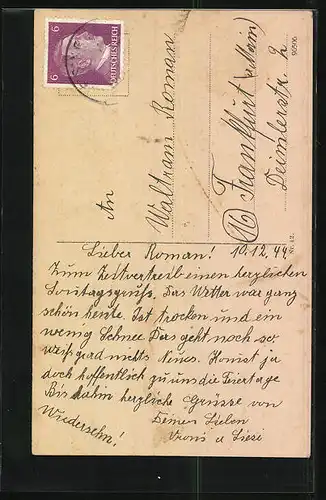 6 DEUTSCHES REICH 6
An
Waltram Roman
(16) Frankfurt (Main)
Deimlerstr. 2
Lieber Roman! 10.12.44
Zum Zeitvertreib einen herzlichen
Sontagsgruss. Das Wetter war ganz
schön heute. Ist trocken und ein
wenig Schnee Das geht noch so
weiss grad nichts Neues. Komst ja
doch hoffentlich zu uns die Feiertage
Bis dahin herzliche Grüsse von
Wiedersehn! Deinen Lieben
Vroni u Liesi